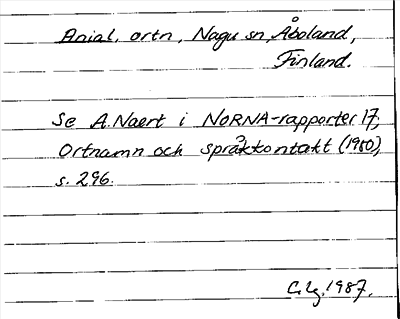 Anial, ortn, Nagu sn, Åboland,
Finland.
Se A. Naert i NORNA-rapporter 17,
Ortnamn och språkkontakt (1980),
s. 296.
C. Lg. 1987.